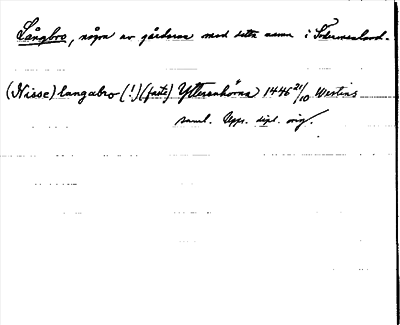 Långbro, några av gårdarna med detta namn i Södermanland.
(Nisse) langabro (!) (faste) Ytterenhörna 1446 21/10 Westins
saml. Upps. dipl. orig.